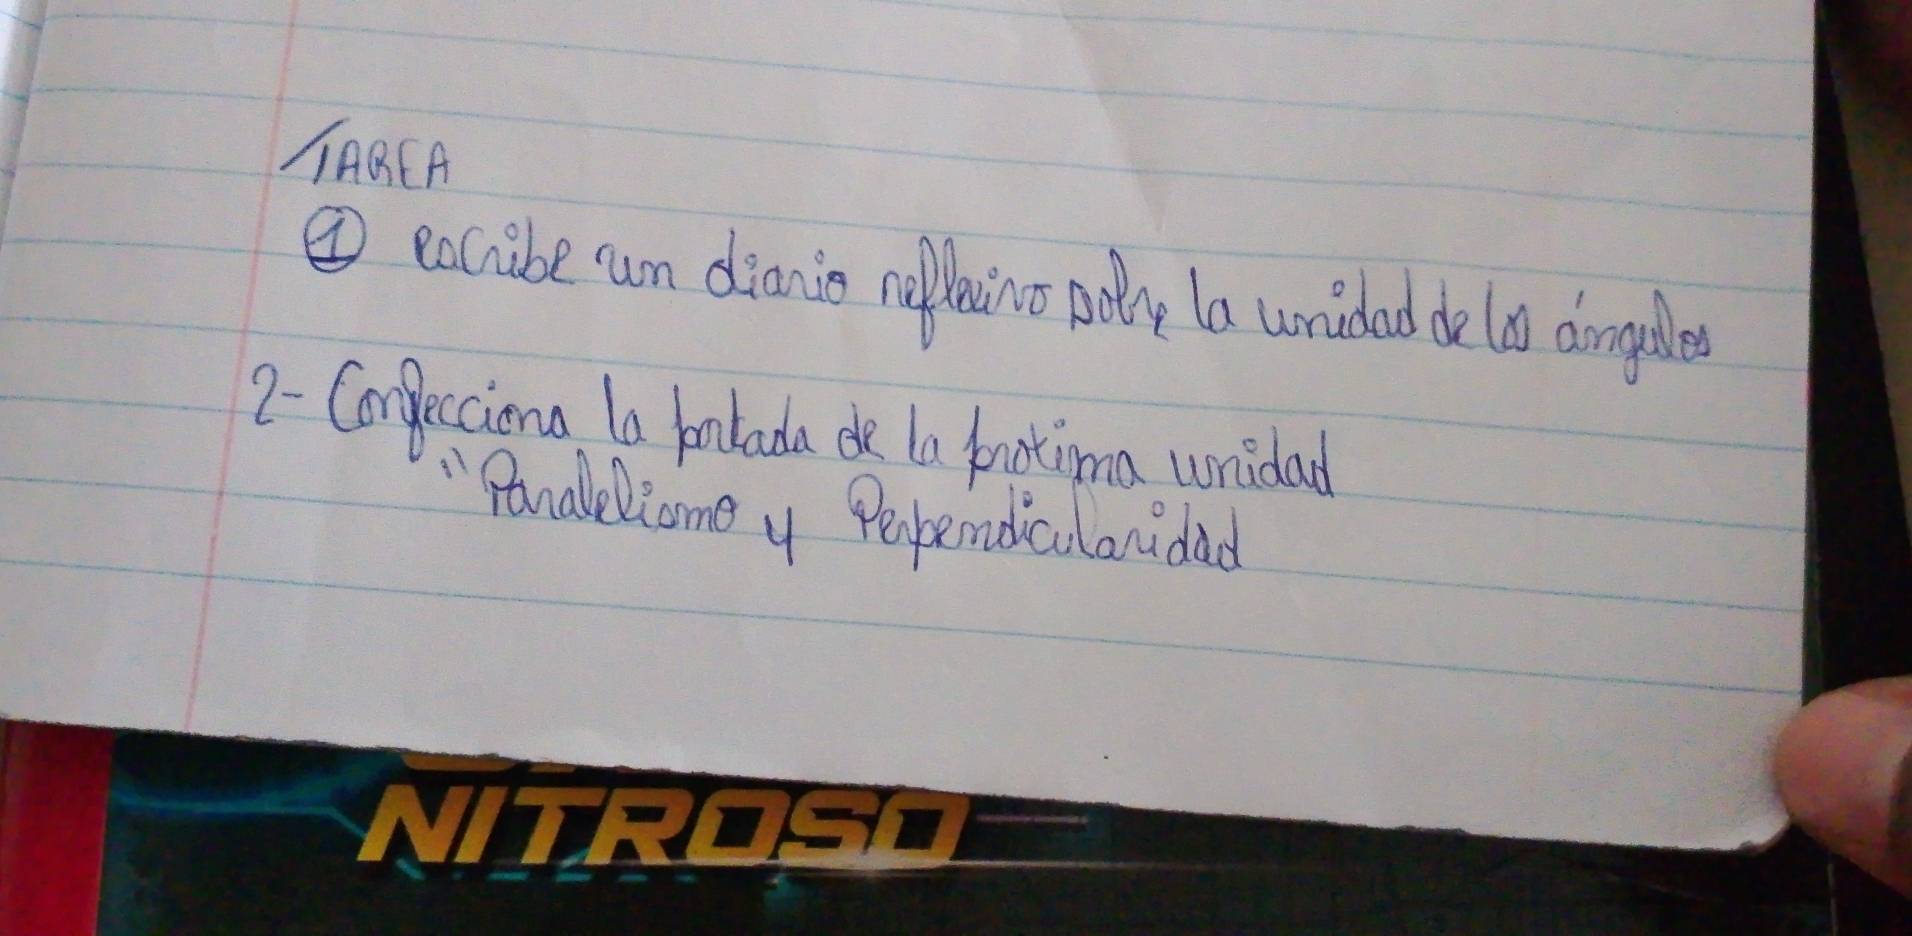 TAREA
① escribe un diario reflexivo sobre la unidad de los ángulos
2- Confecciona la portada de la protima unidad
"Paralelismo y Perpendicularidad
NITROSO